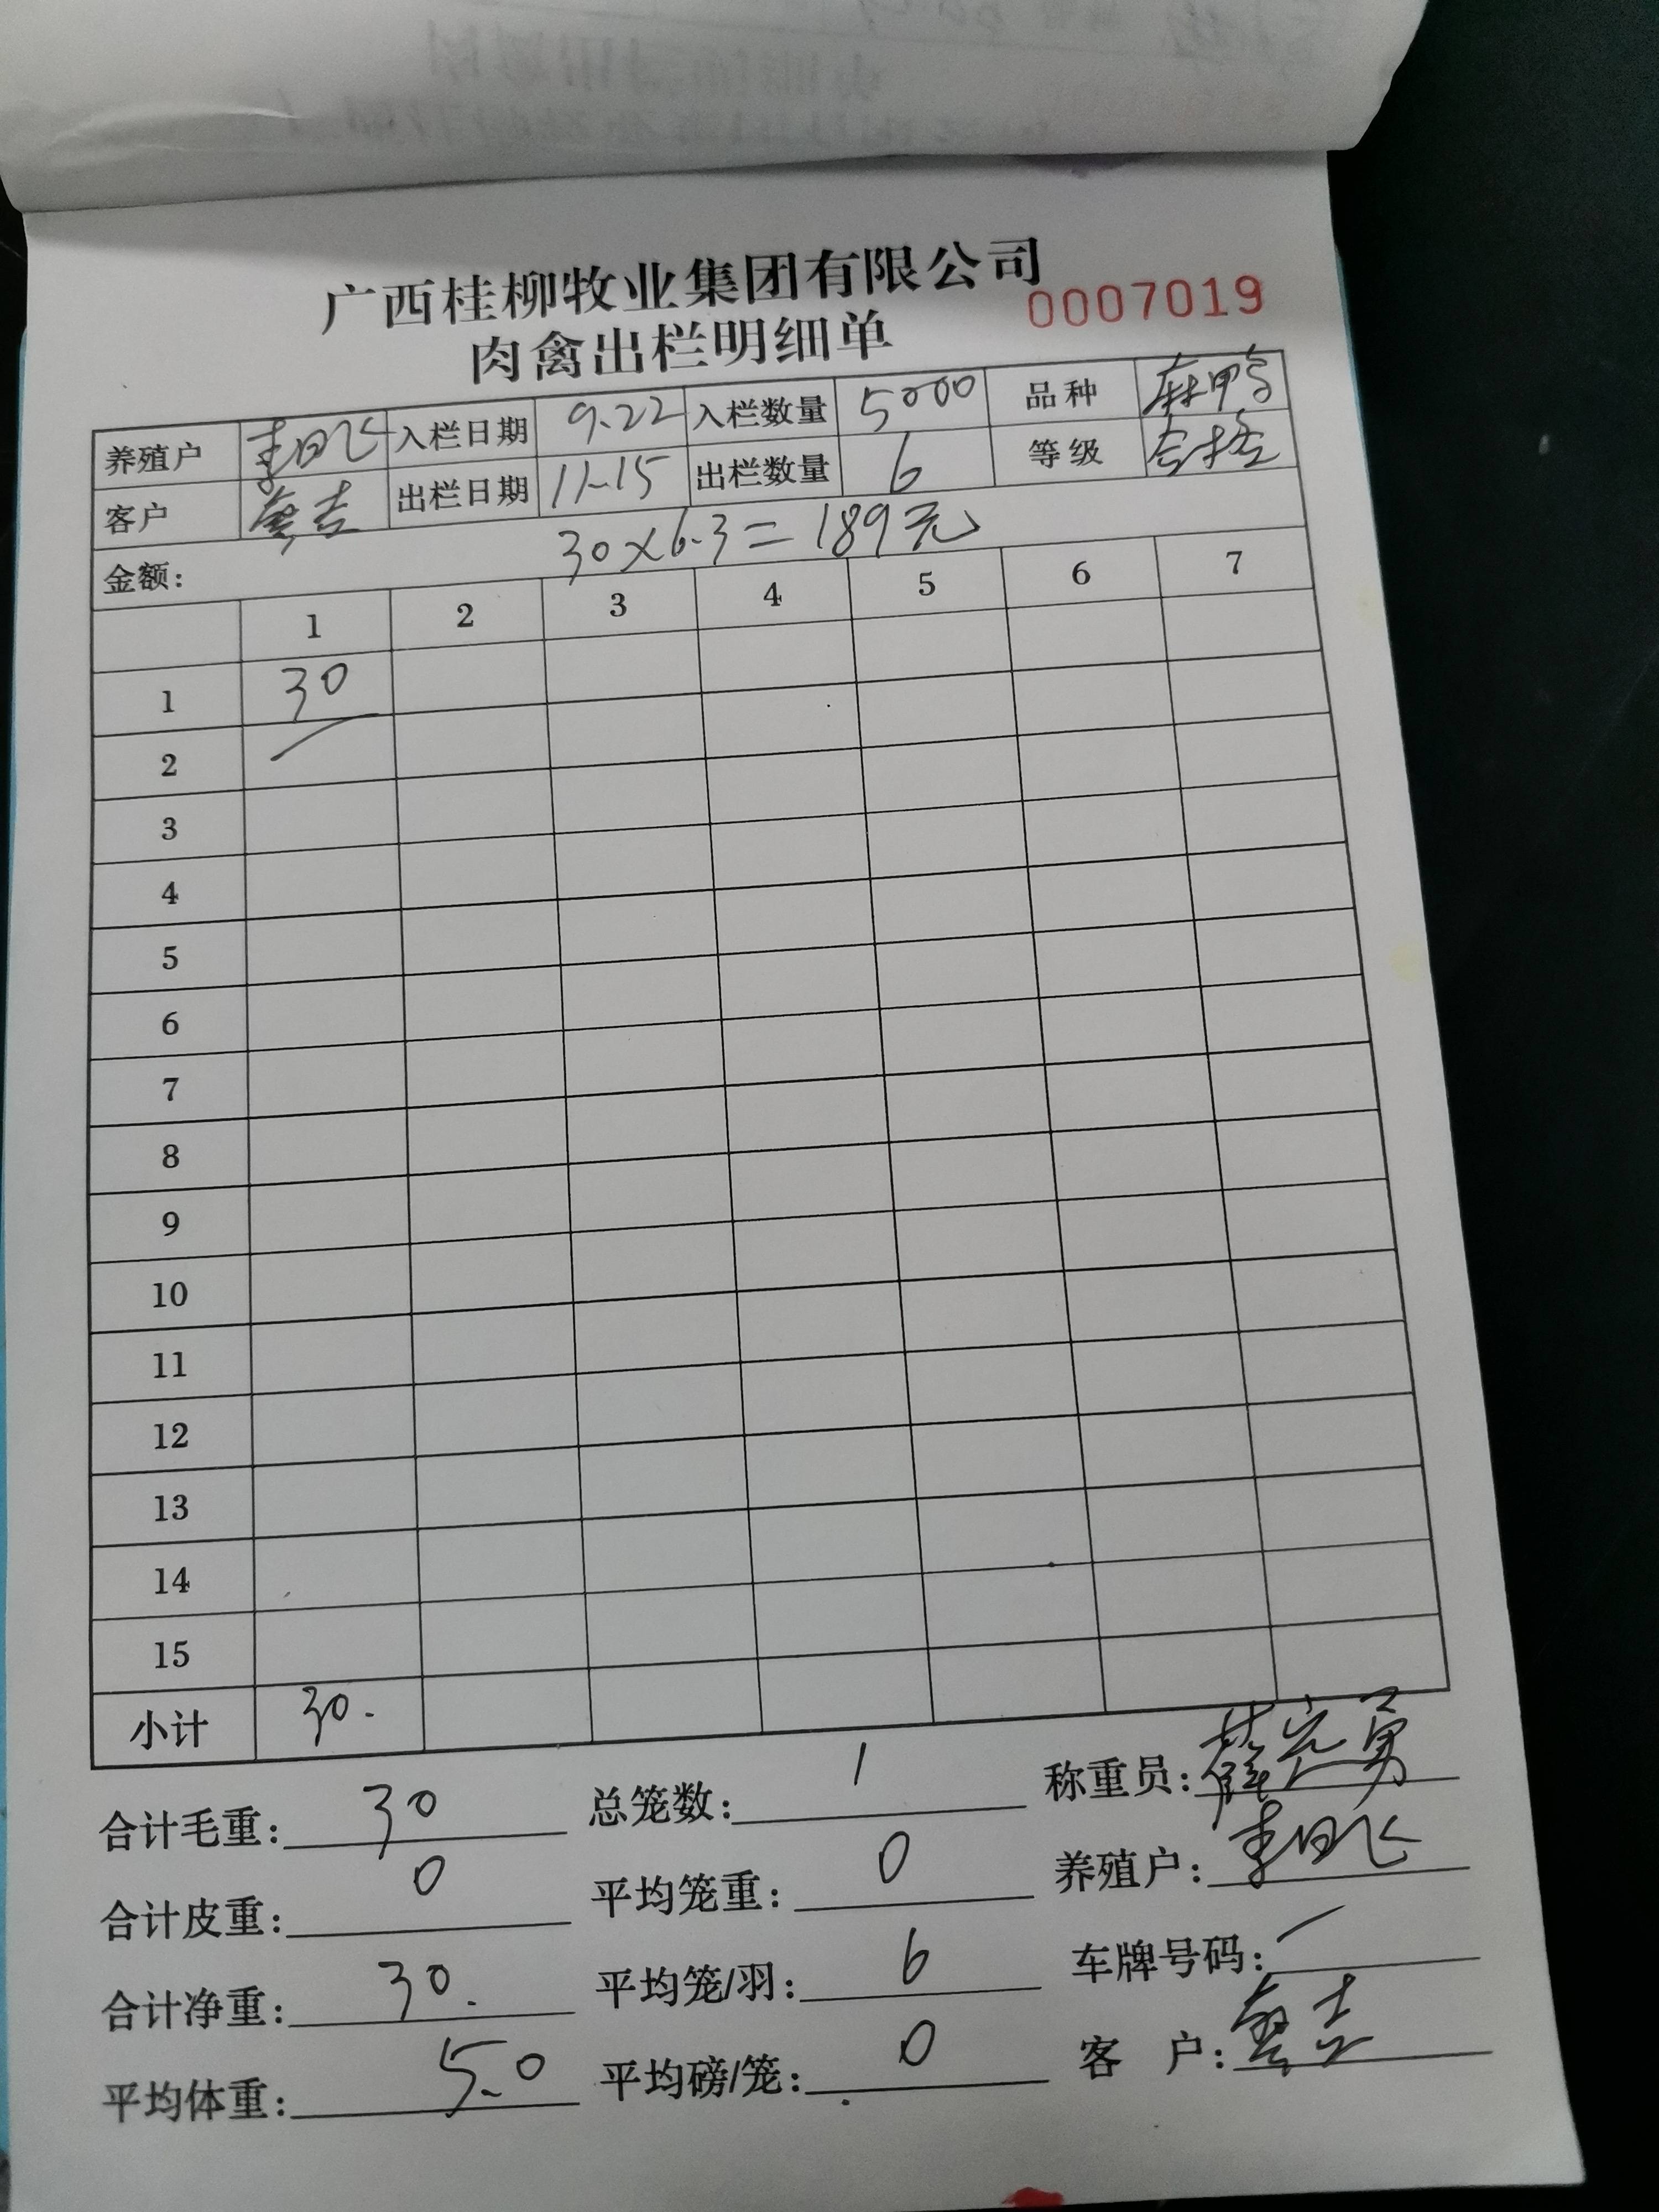 广西桂柳牧业集团有限公司
肉禽出栏明细单 0007019
养殖户 李日飞 入栏日期 9.22 入栏数量 5000 品种 麻鸭
客户 出栏日期 11-15 出栏数量 6 等级
金额: 30×6.3=189元
1 2 3 4 5 6 7
1 30
2
3
4
5
6
7
8
9
10
11
12
13
14
15
小计 30.
合计毛重: 30 总笼数: 1 称重员:
合计皮重: 0 平均笼重: 0 养殖户: 李日飞
合计净重: 30. 平均笼/羽: 6 车牌号码:
平均体重: 5.0 平均磅/笼: 0 客 户: